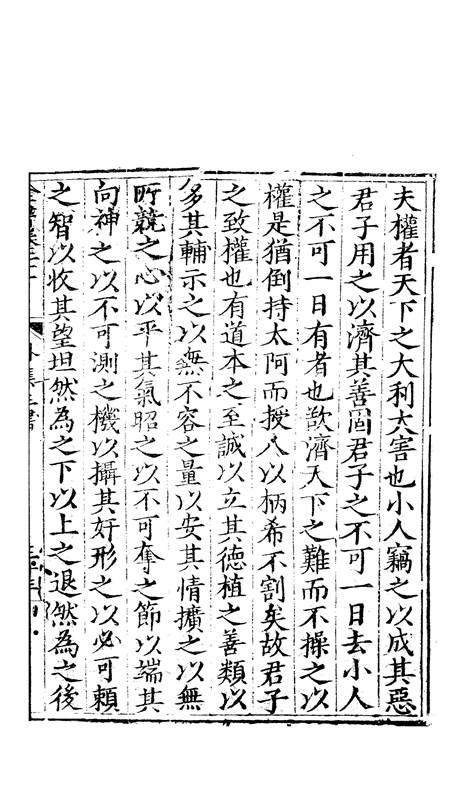 夫權者天下之大利大害也小人竊之以成其惡
君子用之以濟其善固君子之不可一日去小人
之不可一日有者也欲濟天下之難而不操之以
權是猶倒持太阿而授人以柄希不割矣故君子
之致權也有道本之至誠以立其德植之善類以
多其輔示之以無不容之量以安其情擴之以無
所競之心以平其氣昭之以不可奪之節以端其
向神之以不可測之機以攝其奸形之以必可賴
之智以收其望坦然為之下以上之退然為之後
外集三書